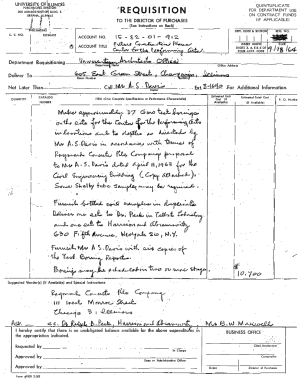 UNIVERSITY OF ILLINOIS
REQUISITION
TO THE DIRECTOR OF PURCHASES
(See Instructions on Back)
QUINTUPLICATE
FOR DEPARTMENT USE
ON CONTRACT FUNDS
(IF APPLICABLE)
ACCOUNT NO. 15-32-01-912
ACCOUNT TITLE Future Contractors House
Center for the Performing Arts
9/18/64
Department Requisitioning University Architects Office
Office Address
Deliver To 605 East Green Street, Champaign, Illinois
Not Later Than Call Mr A.S. Davis Ext 3-1690 For Additional Information
QUANTITY
CATALOG NUMBER
Estimated Unit Cost
(If Available)
Estimated Total Cost
(If Available)
P. O. Number
Make approximately 37 Gow test borings
on the site for the Center for the Performing Arts
in locations and to depths as directed by
Mr A.S. Davis in accordance with Terms of
Raymond Concrete Pile Company proposal
to Mr A.S. Davis dated April 2, 1964 for the
Civil Engineering Building (Copy Attached).
Some Shelby tube samples may be required.
Furnish bottled soil samples in duplicate
Deliver one set to Dr. Peck in Talbot Laboratory
and one set to Harrison and Abramovitz
630 Fifth Avenue, New York 20, N.Y.
Furnish Mr A.S. Davis with six copies of
the Test Boring Reports.
Borings may be scheduled in two or more stages.
10,700
Suggested Vendor(s) (If Available) and Special Instructions
Raymond Concrete Pile Company
111 West Monroe Street
Chicago 3, Illinois
cc. Dr Ralph B. Peck, Harrison and Abramovitz, Mr B.W. Maxwell
I hereby certify that there is an unobligated balance available for the above expenditures in
the appropriation indicated.
BUSINESS OFFICE
Requested by
In Charge
Approved by
Dean or Administrative Officer
Approved by
Date
Director of Purchases